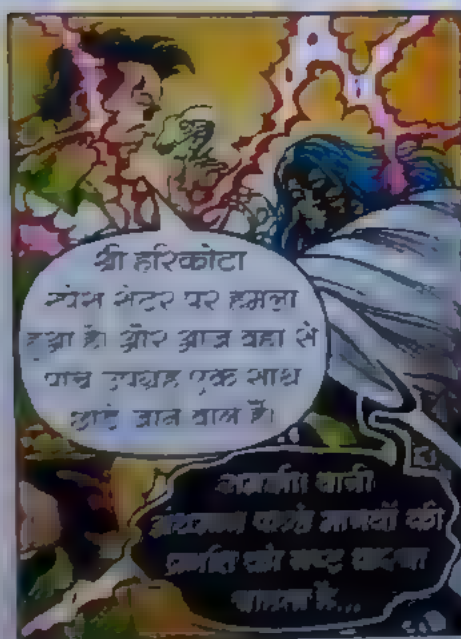 श्री हरिकोटा
स्पेस सेंटर पर हमला
हुआ है। और आज वहां से
पांच उपग्रह एक साथ
छोड़े जाने वाले हैं।
समझी! यानी
मानवों की
को नष्ट करना